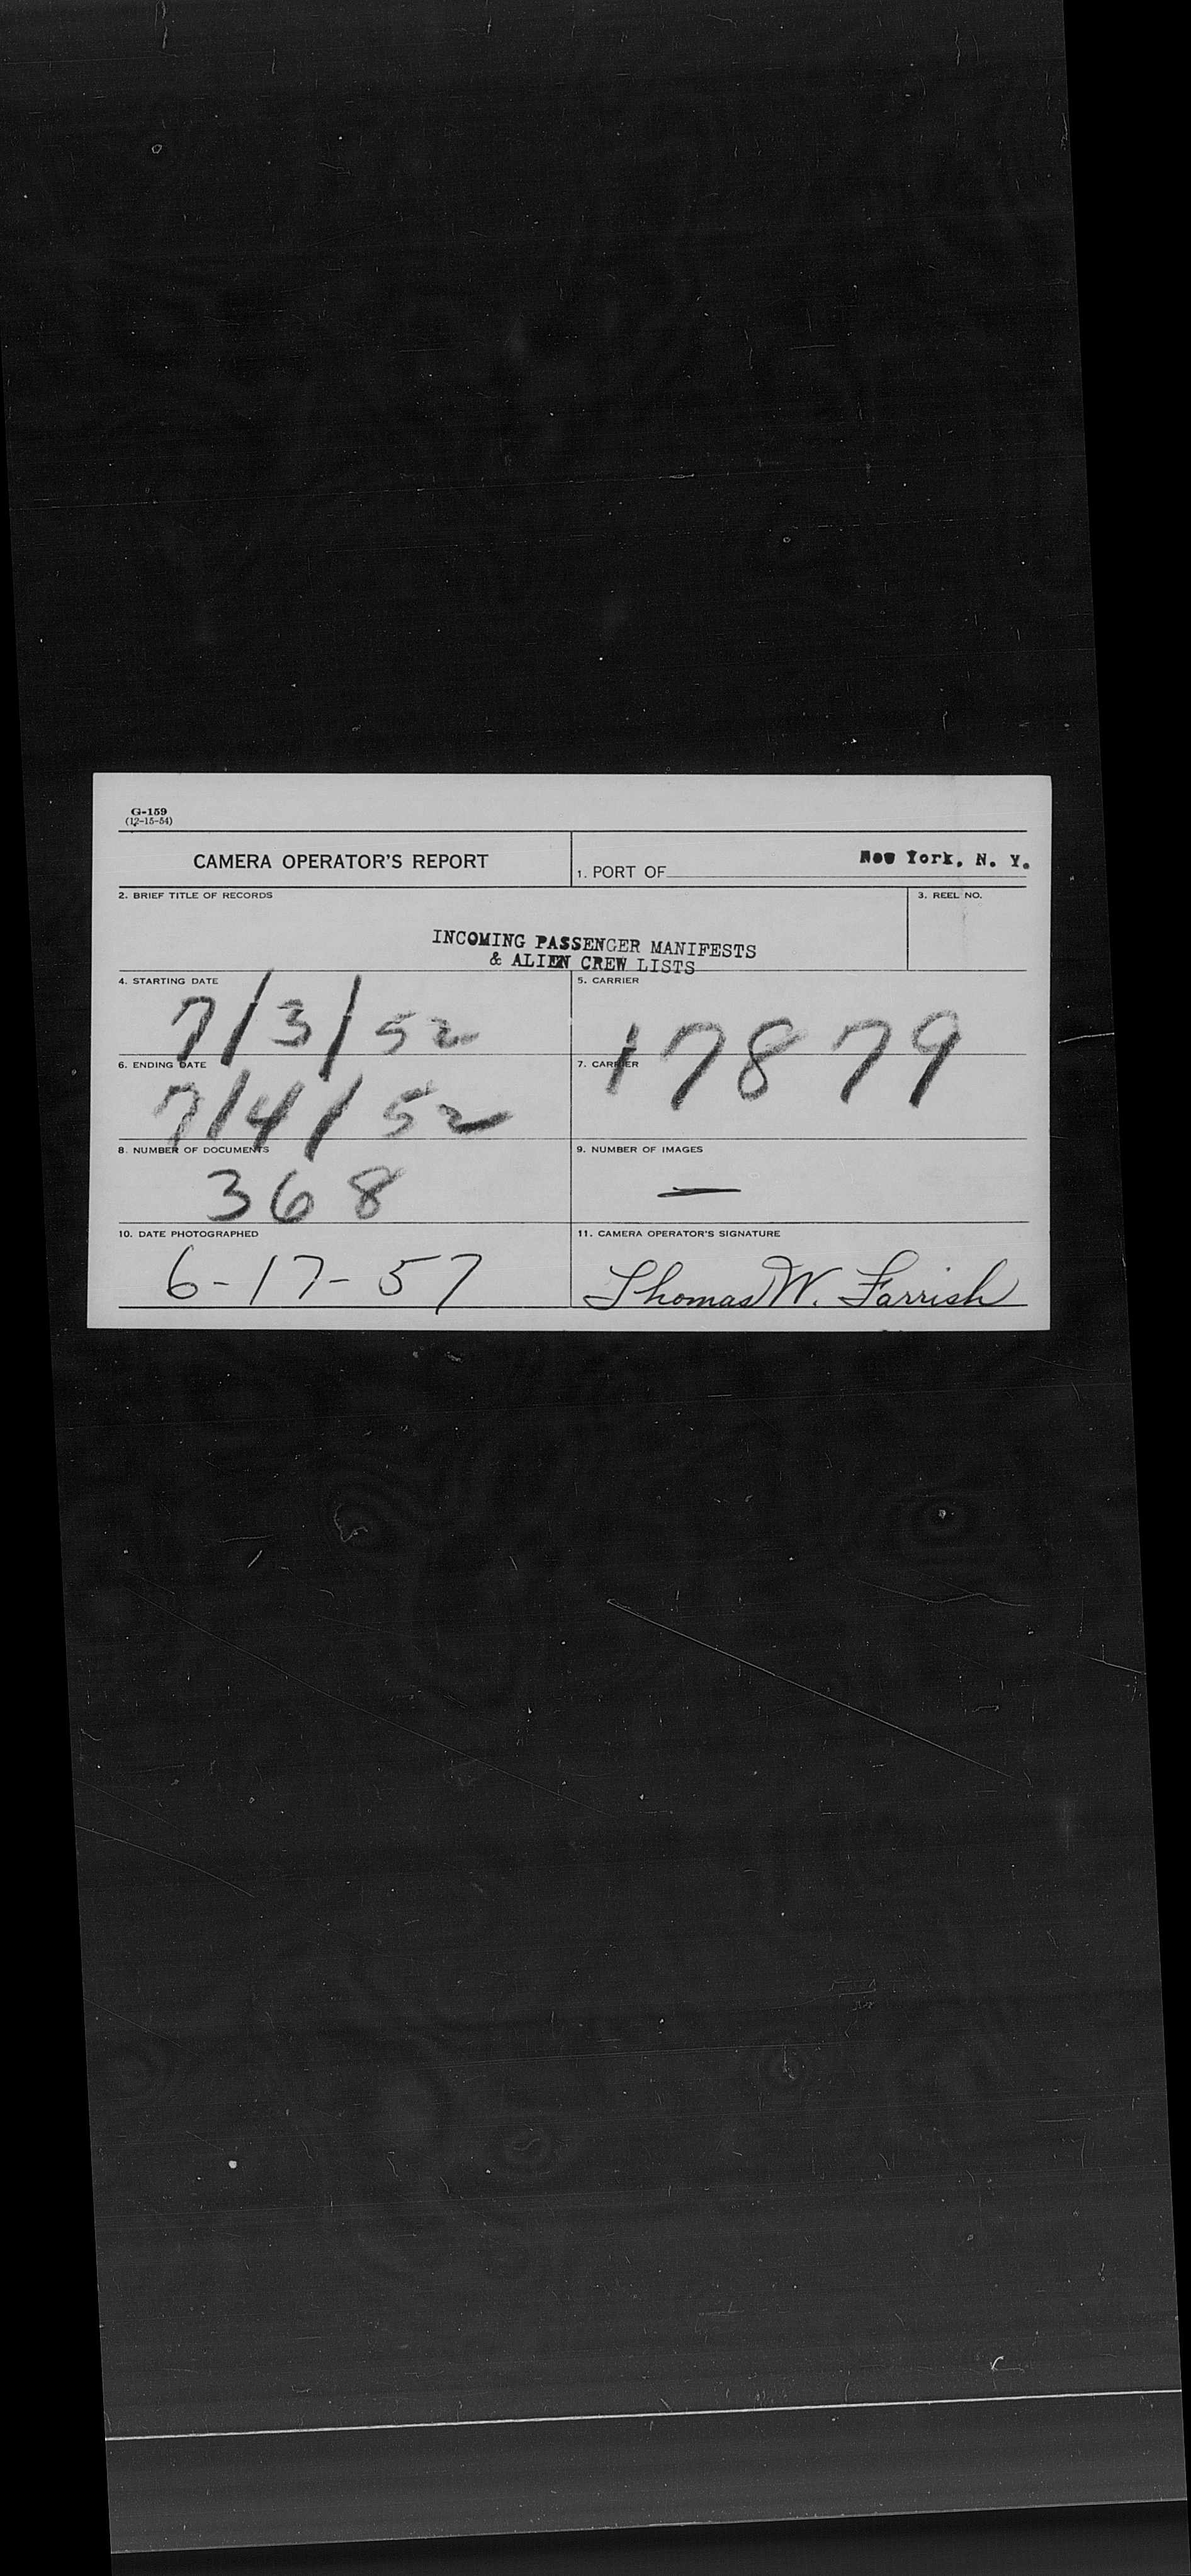 G-159
(12-15-54)
CAMERA OPERATOR'S REPORT
1. PORT OF New York, N. Y.
2. BRIEF TITLE OF RECORDS
3. REEL NO.
INCOMING PASSENGER MANIFESTS
& ALIEN CREW LISTS
4. STARTING DATE
7/3/52
5. CARRIER
17879
6. ENDING DATE
7/4/52
7. CARRIER
8. NUMBER OF DOCUMENTS
368
9. NUMBER OF IMAGES
—
10. DATE PHOTOGRAPHED
6-17-57
11. CAMERA OPERATOR'S SIGNATURE
Thomas W. Farrish